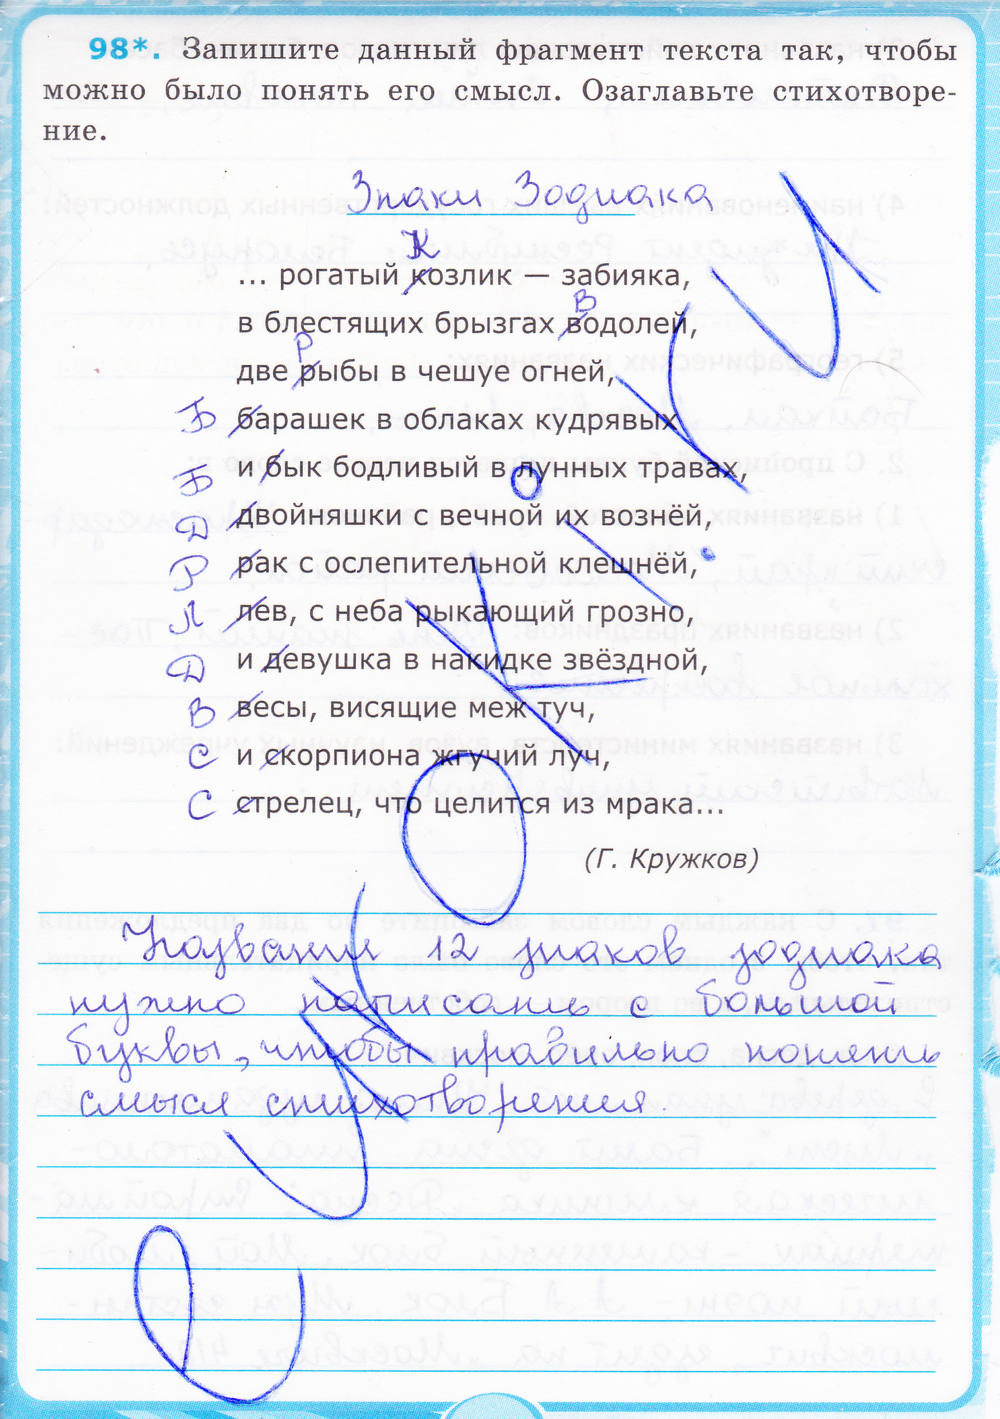 98*. Запишите данный фрагмент текста так, чтобы
можно было понять его смысл. Озаглавьте стихотворе-
ние.
Знаки Зодиака
К
... рогатый козлик — забияка,
В
в блестящих брызгах водолей,
Р
две рыбы в чешуе огней,
Б барашек в облаках кудрявых
Б и бык бодливый в лунных травах,
Д двойняшки с вечной их вознёй,
Р рак с ослепительной клешнёй,
Л лев, с неба рыкающий грозно,
Д и девушка в накидке звёздной,
В весы, висящие меж туч,
С и скорпиона жгучий луч,
С стрелец, что целится из мрака...
(Г. Кружков)
Названия 12 знаков зодиака
нужно написать с большой
буквы, чтобы правильно понять
смысл стихотворения.